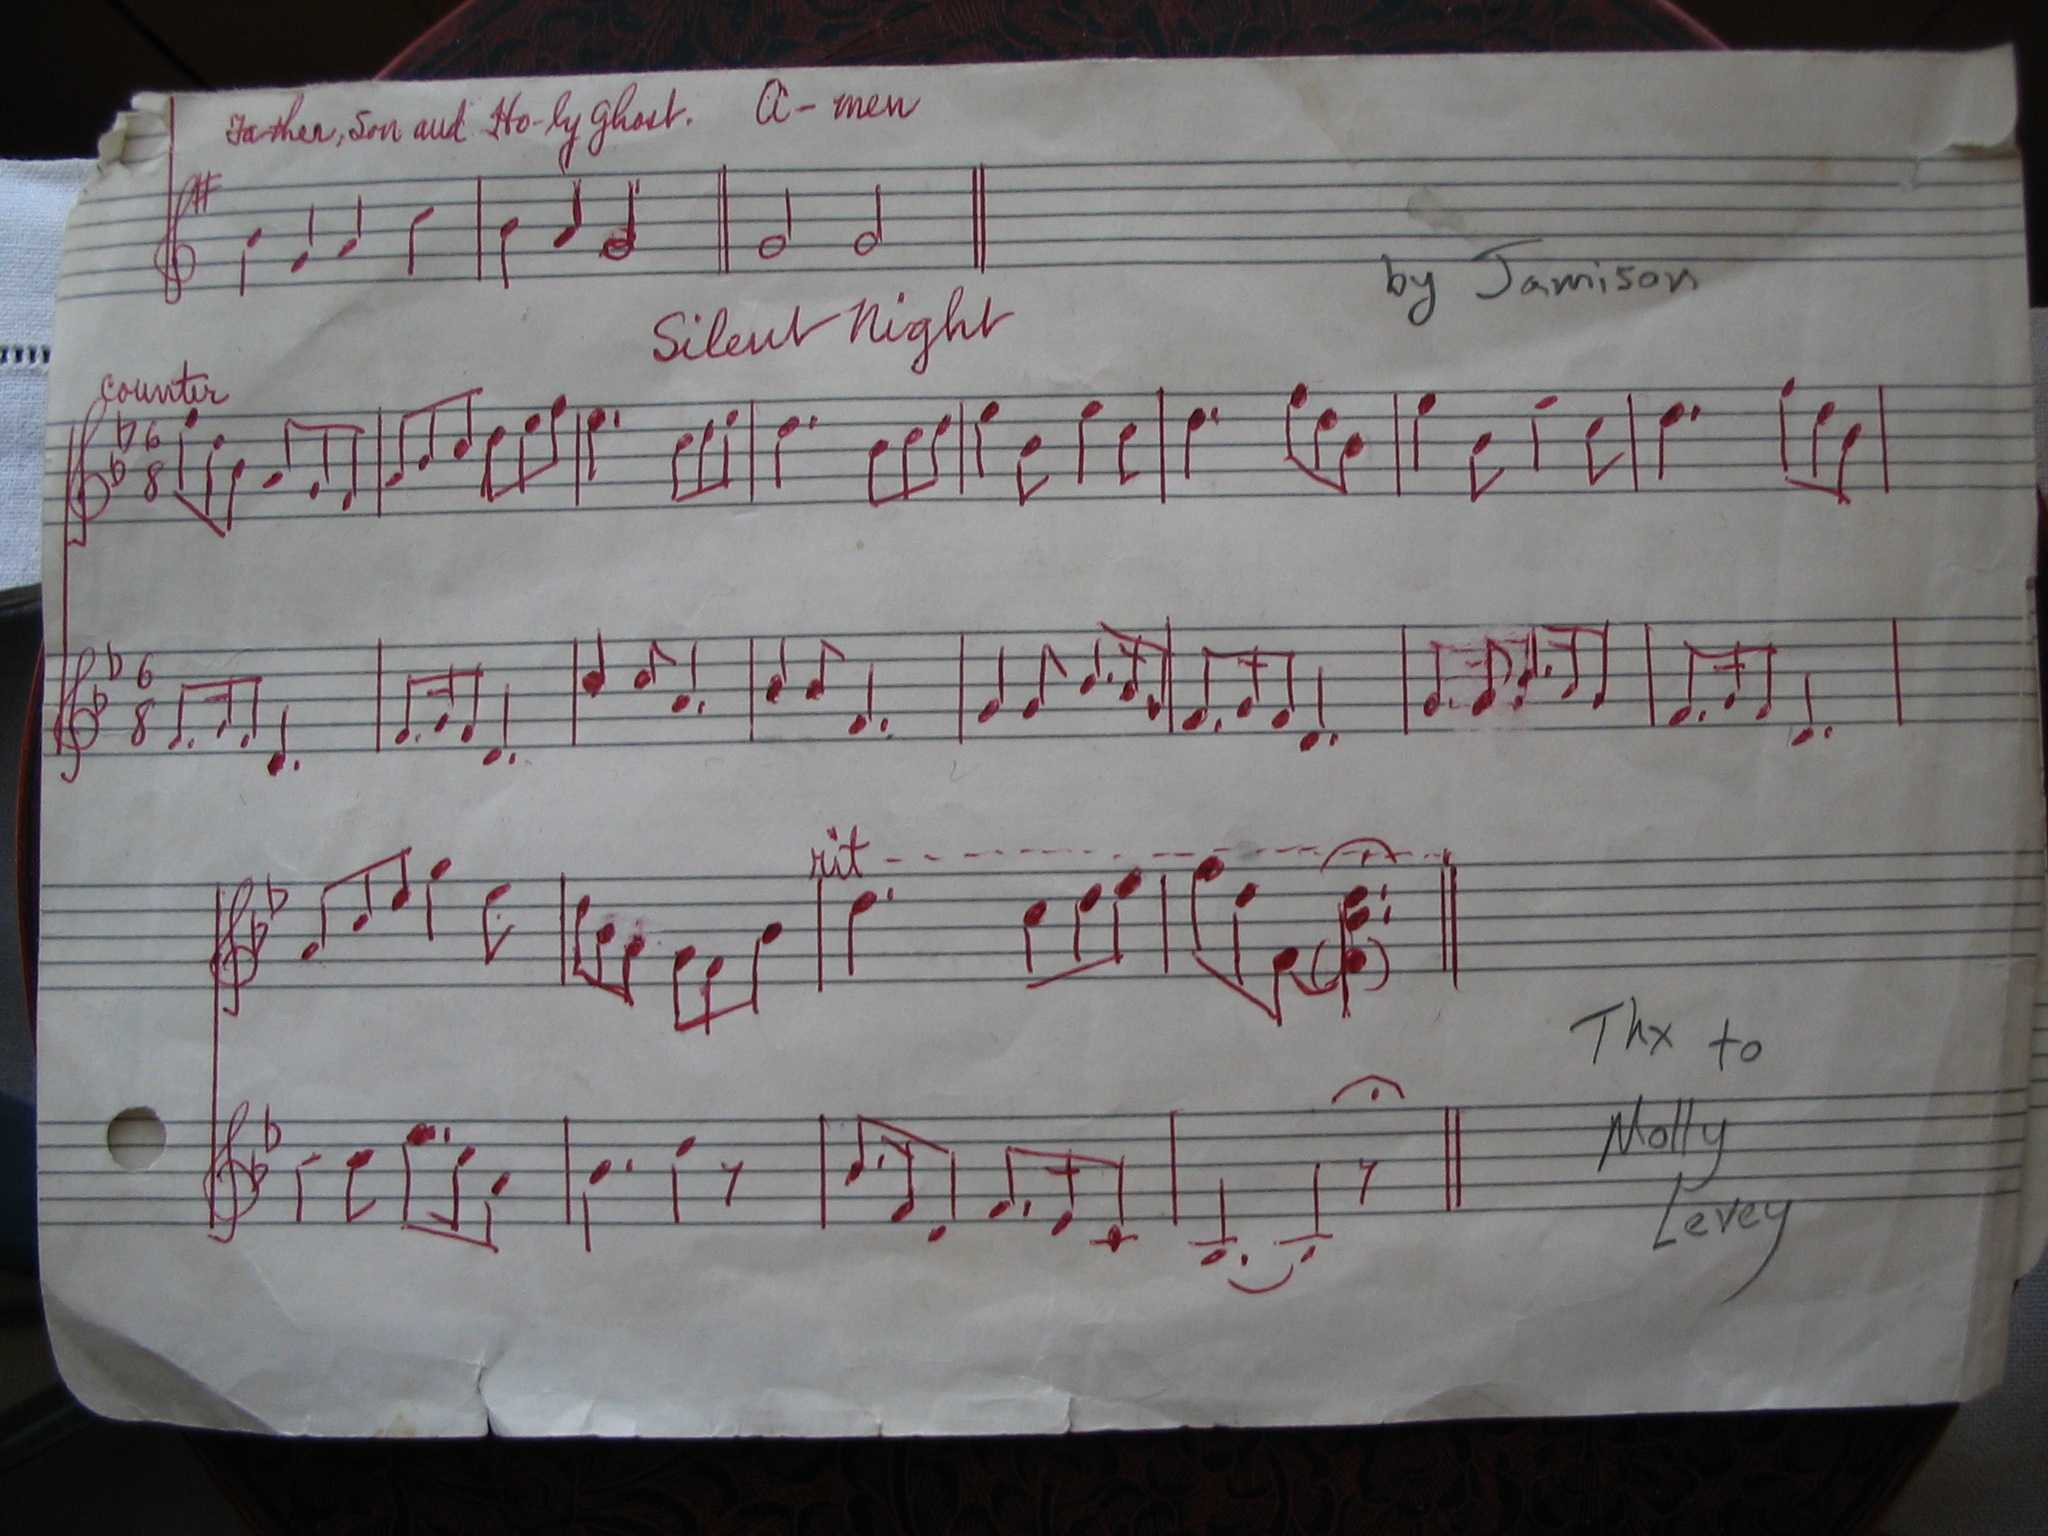 Father, Son and Ho-ly Ghost. A-men
by Jamison
Silent Night
counter
6
8
6
8
rit
Thx to
Molly
Levey